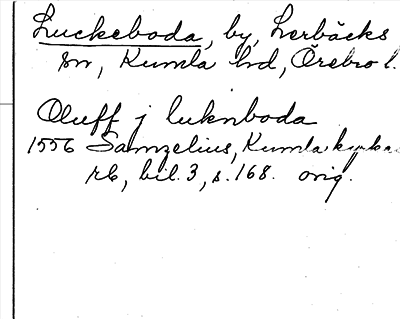 Luckeboda, by, Lerbäcks
sn, Kumla hd, Örebro l.
Oluff j luknboda
1556 Samzelius, Kumla kyrkas
rb, bil. 3, s. 168. orig.